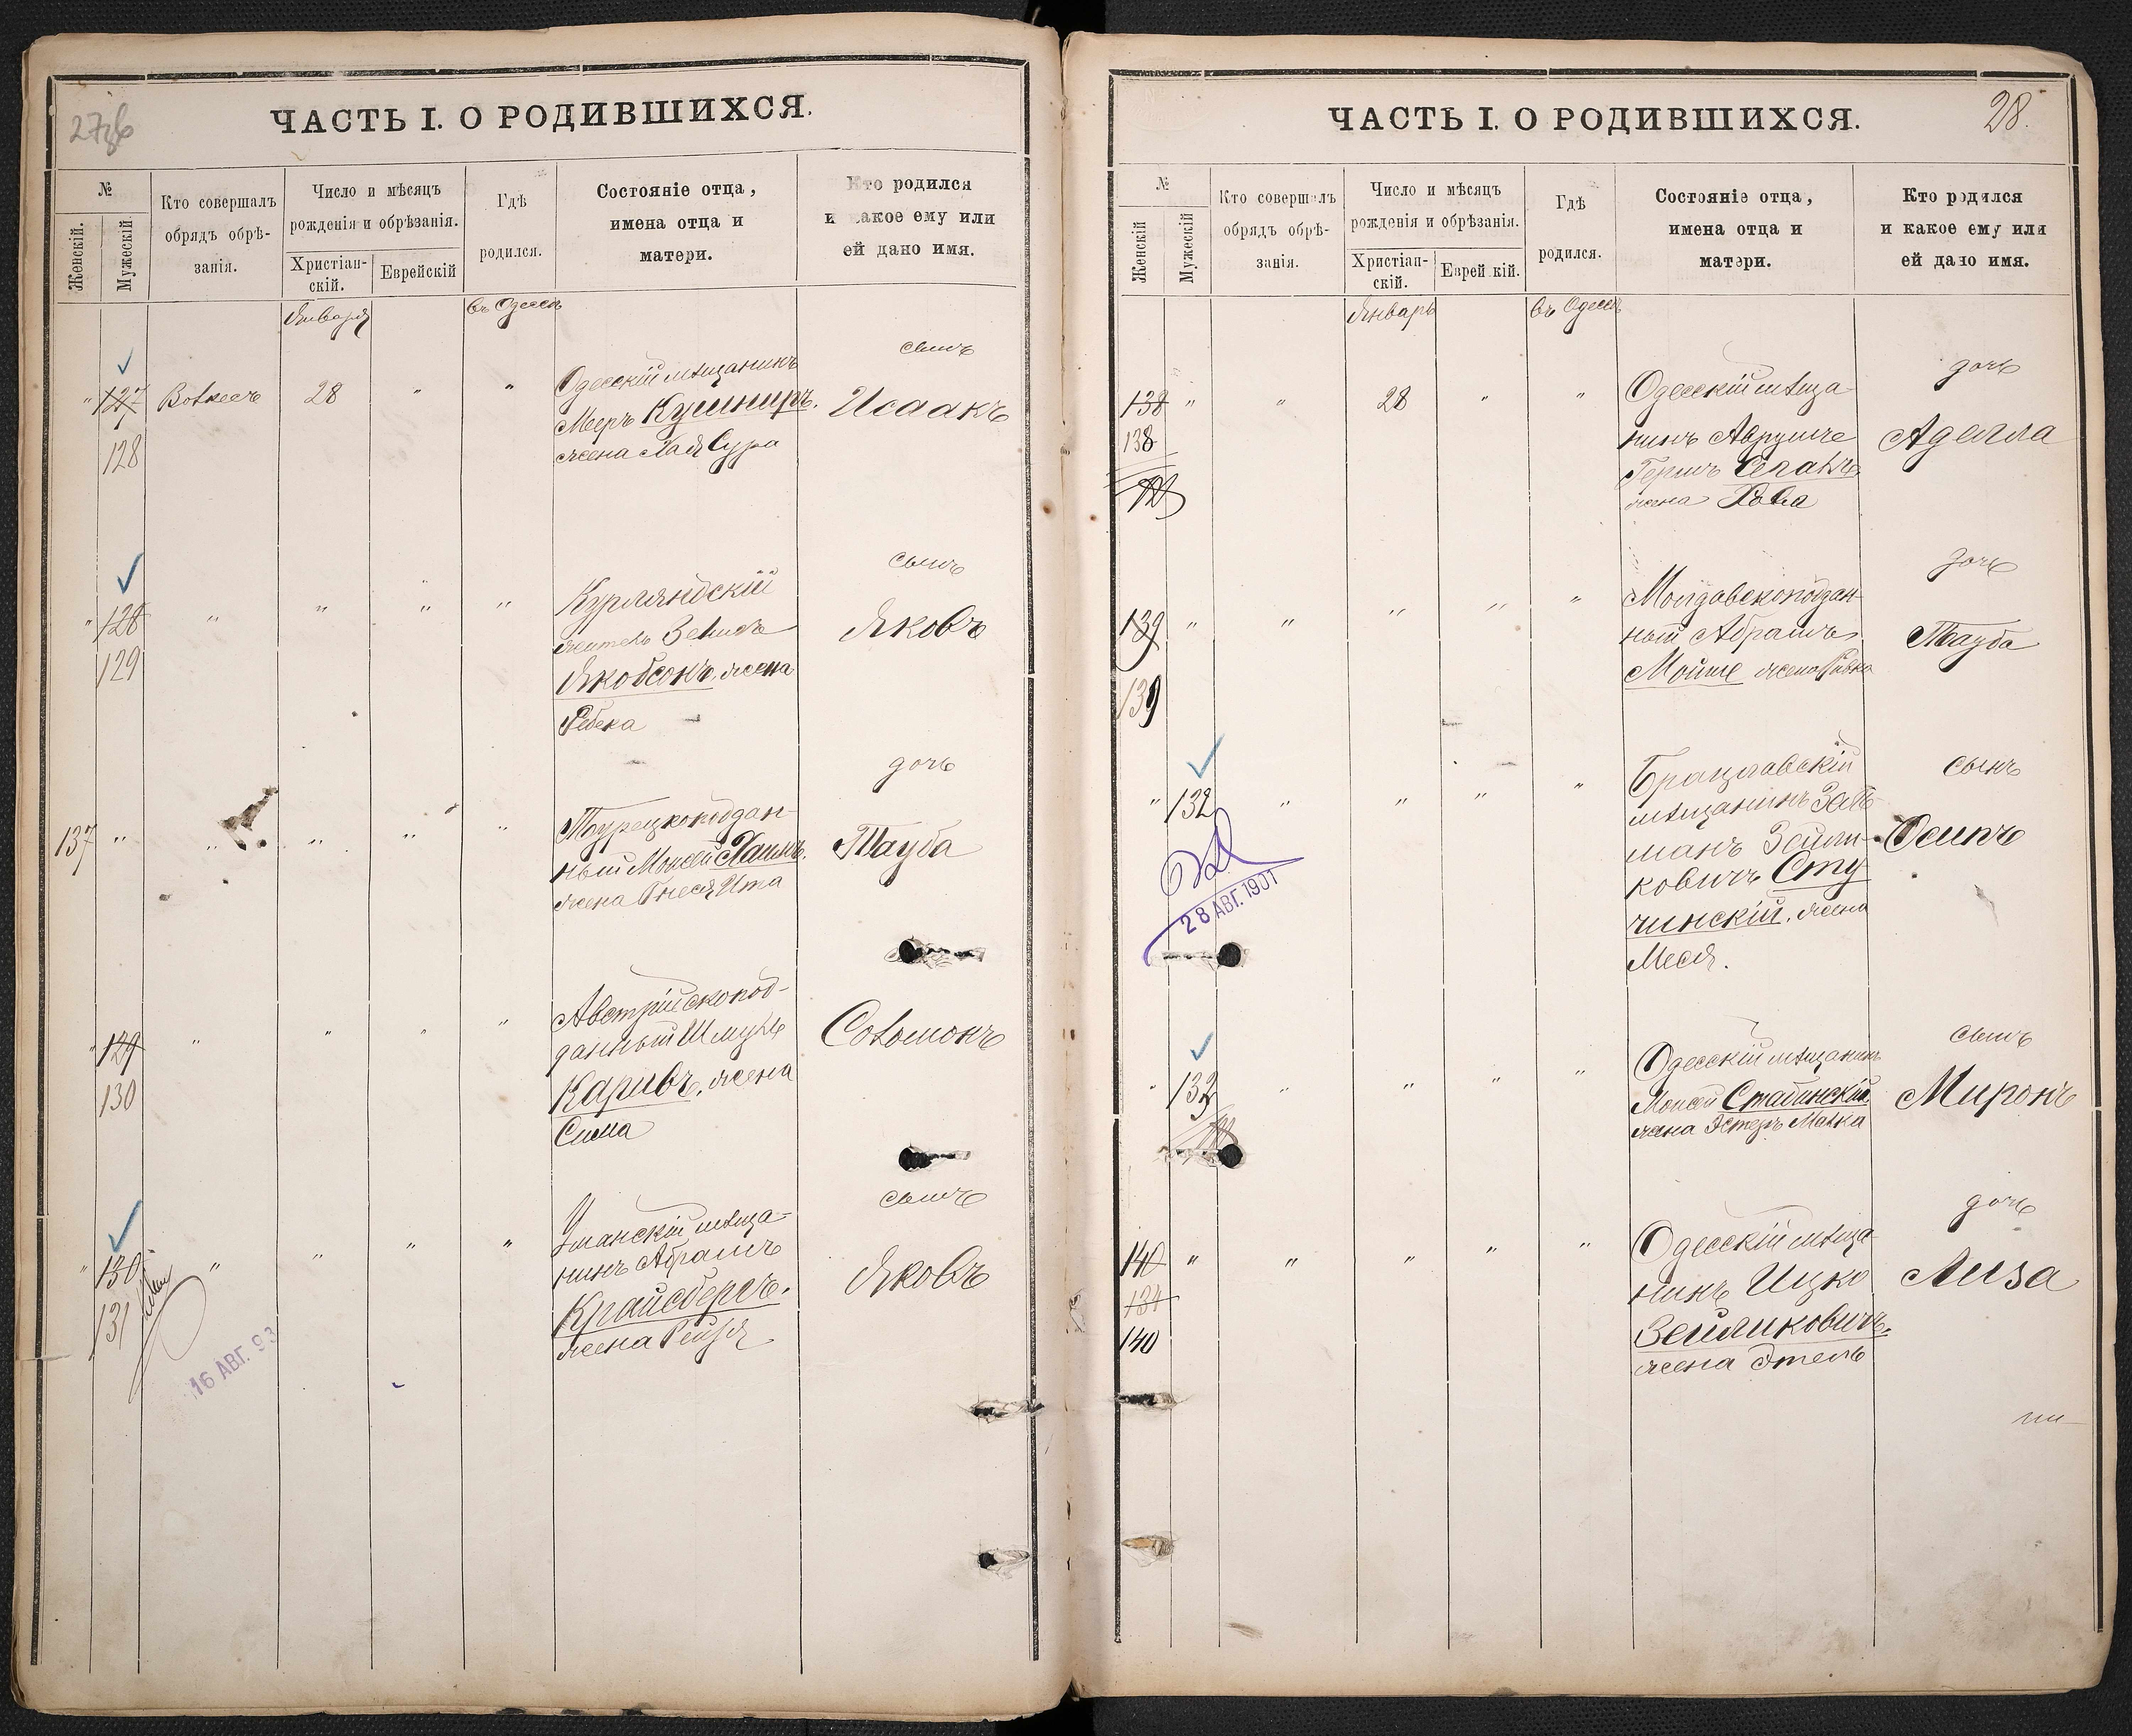 27 об
ЧАСТЬ I. О РОДИВШИХСЯ.
№
Женскій.
Мужескій
Кто совершалъ
обрядъ обрѣ-
занія.
Число и мѣсяцъ
рожденія и обрѣзанія.
Христіан-
скій.
Еврейскій
Гдѣ
родился.
Состояніе отца,
имена отца и
матери.
Кто родился
и какое ему или
ей дано имя.
Января
въ Одессѣ
" 127 28 " "
128
Одесскій мѣщанинъ
Мееръ Кушниръ.
жена Хая Сура
сынъ
Исаакъ
" 128 " " " "
129
Курляндскій
житель
Якобсонъ, жена
Ребека
сынъ
Яковъ
137 " " " " "
Турецкоподдан-
ный Моисей Хаимъ.
жена Гнеся Ита
дочь
Тауба
" 129 " " " "
130
Австрійскопод-
данный Шмуль
Каривъ, жена
Сима
Соломонъ
" 130 " " " "
131
16 АВГ. 93
Уманскій мѣща-
нинъ Абрамъ
Крайсбергъ.
жена Рейзя
сынъ
Яковъ
28.
ЧАСТЬ I. О РОДИВШИХСЯ.
№
Женскій
Мужескій
Кто совершалъ
обрядъ обрѣ-
занія.
Число и мѣсяцъ
рожденія и обрѣзанія.
Христіан-
скій.
Еврей кій.
Гдѣ
родился.
Состояніе отца,
имена отца и
матери.
Кто родился
и какое ему или
ей дано имя.
Январь
въ Одессѣ
138 " " 28 " "
138
Одесскій мѣща-
нинъ Аврумъ
Гершъ
жена
дочь
Аделла
139 " " " " "
139
Молдавскоподдан-
ный Абрамъ
Мойше жена Ривка
дочь
Тауба
" 132 " " " "
28 АВГ. 1901
Брацлавскій
мѣщанинъ Зель-
манъ Зейли-
ковичъ Сту
чинскій, жена
Меся.
сынъ
Осипъ
" 133 " " " "
Одесскій мѣщанинъ
Моисей Стабинскій,
жена Эстеръ Малка
сынъ
Миронъ
140 " " " " "
131
140
Одесскій мѣща-
нинъ Ицко
Зейликовичъ.
жена Этель
дочь
Лиза